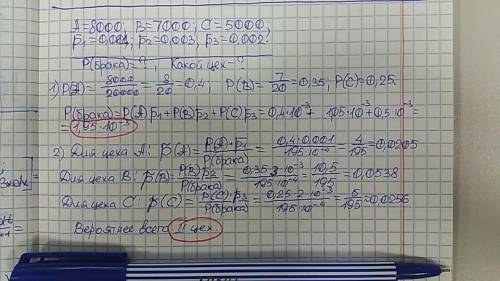 A=8000; B=7000; C=5000,
p₁=0,001, p₂=0,003, p₃=0,002.
P(брака)=?, Какой цех=?
1) P(A)=8000/20000=8/20=0,4, P(B)=7/20=0,35, P(C)=0,25
P(брака)=P(A)p₁+P(B)p₂+P(C)p₃=0,4·10⁻³+1,05·10⁻³+0,5·10⁻³=
=1,95·10⁻³
2) Для цеха A: p̃(A)=P(A)·p₁/P(брака)=0,4·0,001/195·10⁻⁴=4/195=0,0205
Для цеха B: p̃(B)=P(B)p₂/P(брака)=0,35·3·10⁻³/195·10⁻⁴=10,5/195=0,0538
Для цеха C: p̃(C)=P(C)p₃/P(брака)=0,25·2·10⁻³/195·10⁻⁴=5/195=0,0256
Вероятнее всего II цех.